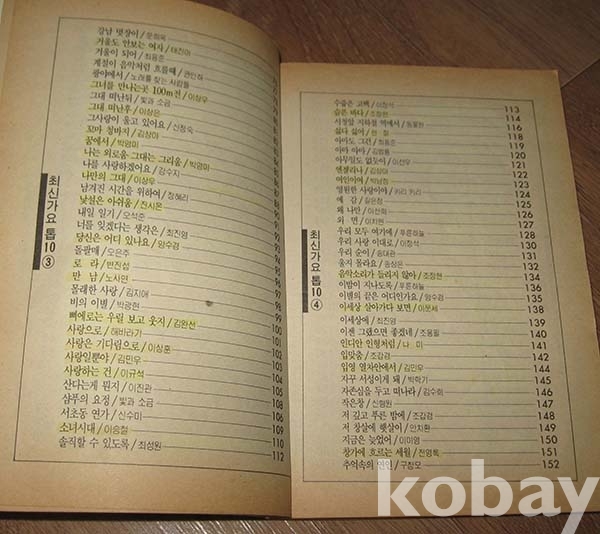 강남 멋장이/문희옥
거울도 안보는 여자/태진아
거울이 되어/최용준
계절이 음악처럼 흐를때/권인하
광야에서/노래를 찾는 사람들
그녀를 만나는곳 100m전/이상우
그대 떠난뒤/빛과 소금
그대 떠난후/이상은
그사람이 울고 있어요/신정숙
꼬마 청바지/김상아
꿈에서/박영미
나는 외로움 그대는 그리움/박영미
나를 사랑하겠어요/강수지
나만의 그대/이상우
남겨진 시간을 위하여/정혜리
낯설은 아쉬움/전시온
내일 일기/오석준
너를 잊겠다는 생각은/최진영
당신은 어디 있나요/양수경
돌팔매/오은주
로라/변진섭
만남/노사연
몰래한 사랑/김지애 97
비의 이별/박광현 98
삐에로는 우릴 보고 웃지/김완선 99
사랑으로/해바라기 100
사랑은 기다림으로/이상훈 101
사랑일뿐야/김민우 102
사랑하는 건/이규석 104
산다는게 뭔지/이진관 105
샴푸의 요정/빛과 소금 106
서초동 연가/신수미 108
소녀시대/이승철 109
솔직할 수 있도록/최성원 110
112
최신가요 톱10 ③
수줍은 고백/이정석 113
슬픈 바다/조정현 114
시청앞 지하철 역에서/동물원 116
싫다 싫어/현철 118
아마도 그건/최용준 119
아마 아마/김범룡 120
아무일도 없듯이/이선우 121
앤젤리나/김상아 122
여인이여/박남정 123
영원한 사랑이야/키리 키리 124
예감/길은정 125
왜 나만/이선희 126
외면/이치현 127
우리 모두 여기에/푸른하늘 128
우리 사랑 이대로/이정석 130
우리 순이/송대관 131
웃지 몰라요/송상은 132
음악소리가 들리지 않아/조정현 134
이밤이 지나도록/푸른하늘 136
이별의 끝은 어디인가요/양수경 135
이세상 살아가다 보면/이문세 138
이세상에/최진영 139
이젠 그랬으면 좋겠네/조용필 140
인디안 인형처럼/나미 141
입맞춤/조갑경 142
입영 열차안에서/김민우 144
자꾸 서성이게 돼/박학기 145
자존심을 두고 떠나라/김수희 146
작은창/신형원 147
저 깊고 푸른 밤에/조갑경 148
저 창살에 햇살이/안치환 149
지금은 늦었어/이미영 150
창가에 흐르는 세월/전영록 151
추억속의 연인/구창모 152
최신가요 톱10 ④
kobay